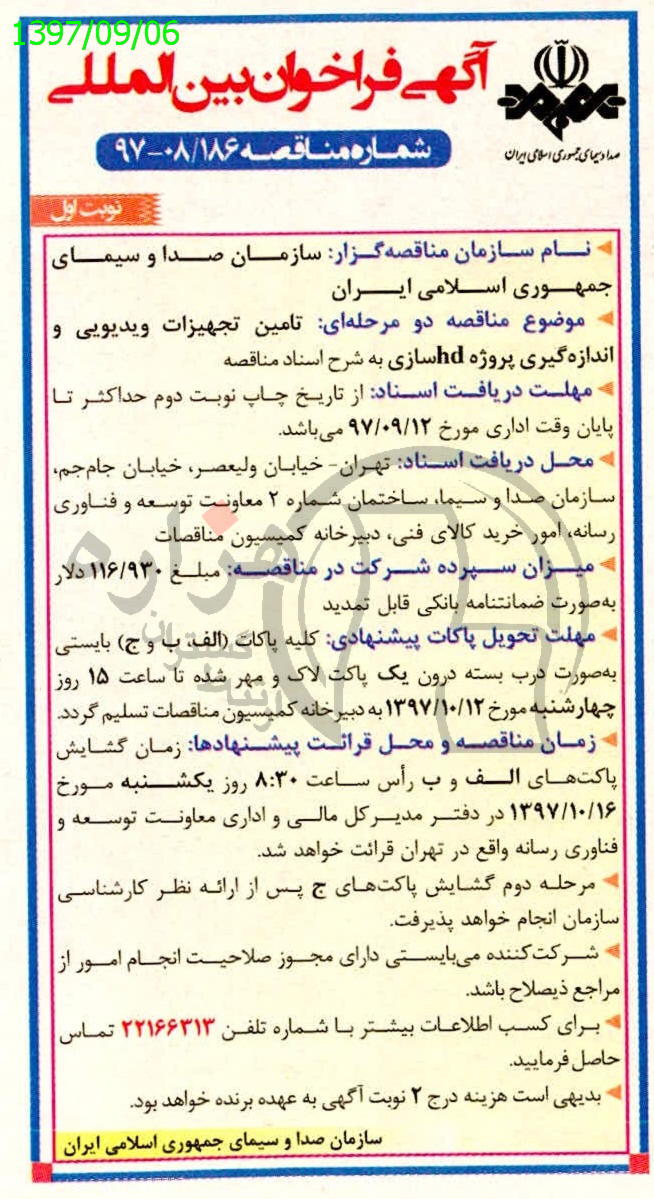 1397/09/06
آگهی فراخوان بین‌المللی
صدا و سیمای جمهوری اسلامی ایران
شماره مناقصه ۹۷-۰۸/۱۸۶
نوبت اول
نام سازمان مناقصه‌گزار: سازمان صدا و سیمای
جمهوری اسلامی ایران
موضوع مناقصه دو مرحله‌ای: تامین تجهیزات ویدیویی و
اندازه‌گیری پروژه hdسازی به شرح اسناد مناقصه
مهلت دریافت اسناد: از تاریخ چاپ نوبت دوم حداکثر تا
پایان وقت اداری مورخ ۹۷/۰۹/۱۲ می‌باشد.
محل دریافت اسناد: تهران- خیابان ولیعصر، خیابان جام‌جم،
سازمان صدا و سیما، ساختمان شماره ۲ معاونت توسعه و فناوری
رسانه، امور خرید کالای فنی، دبیرخانه کمیسیون مناقصات
میزان سپرده شرکت در مناقصه: مبلغ ۱۱۶/۹۳۰ دلار
به‌صورت ضمانتنامه بانکی قابل تمدید
مهلت تحویل پاکات پیشنهادی: کلیه پاکات (الف، ب و ج) بایستی
به‌صورت درب بسته درون یک پاکت لاک و مهر شده تا ساعت ۱۵ روز
چهارشنبه مورخ ۱۳۹۷/۱۰/۱۲ به دبیرخانه کمیسیون مناقصات تسلیم گردد.
زمان مناقصه و محل قرائت پیشنهادها: زمان گشایش
پاکت‌های الف و ب رأس ساعت ۸:۳۰ روز یکشنبه مورخ
۱۳۹۷/۱۰/۱۶ در دفتر مدیرکل مالی و اداری معاونت توسعه و
فناوری رسانه واقع در تهران قرائت خواهد شد.
مرحله دوم گشایش پاکت‌های ج پس از ارائه نظر کارشناسی
سازمان انجام خواهد پذیرفت.
شرکت‌کننده می‌بایستی دارای مجوز صلاحیت انجام امور از
مراجع ذیصلاح باشد.
برای کسب اطلاعات بیشتر با شماره تلفن ۲۲۱۶۶۳۱۳ تماس
حاصل فرمایید.
بدیهی است هزینه درج ۲ نوبت آگهی به عهده برنده خواهد بود.
سازمان صدا و سیمای جمهوری اسلامی ایران
هزاره